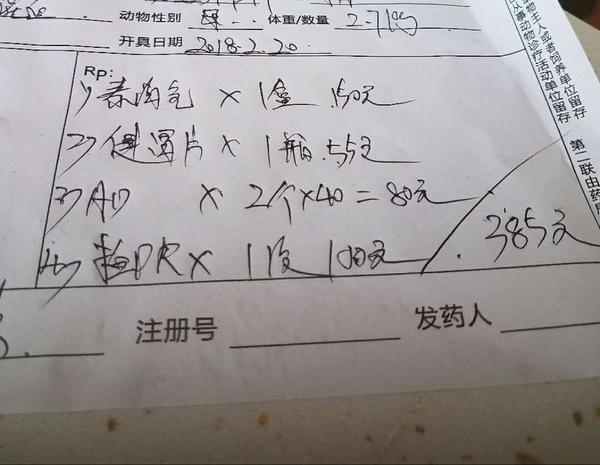 动物性别 体重/数量 2.71kg
开具日期 2018.2.20
Rp:
1) × 1盒 150元
2) 片 × 1瓶 55元
3) AD × 2个×40=80元
4) 拍DR × 1次 100元
385元
注册号 发药人
从事动物诊疗活动单位留存
动物主人或者饲养单位留存
第二联由药房